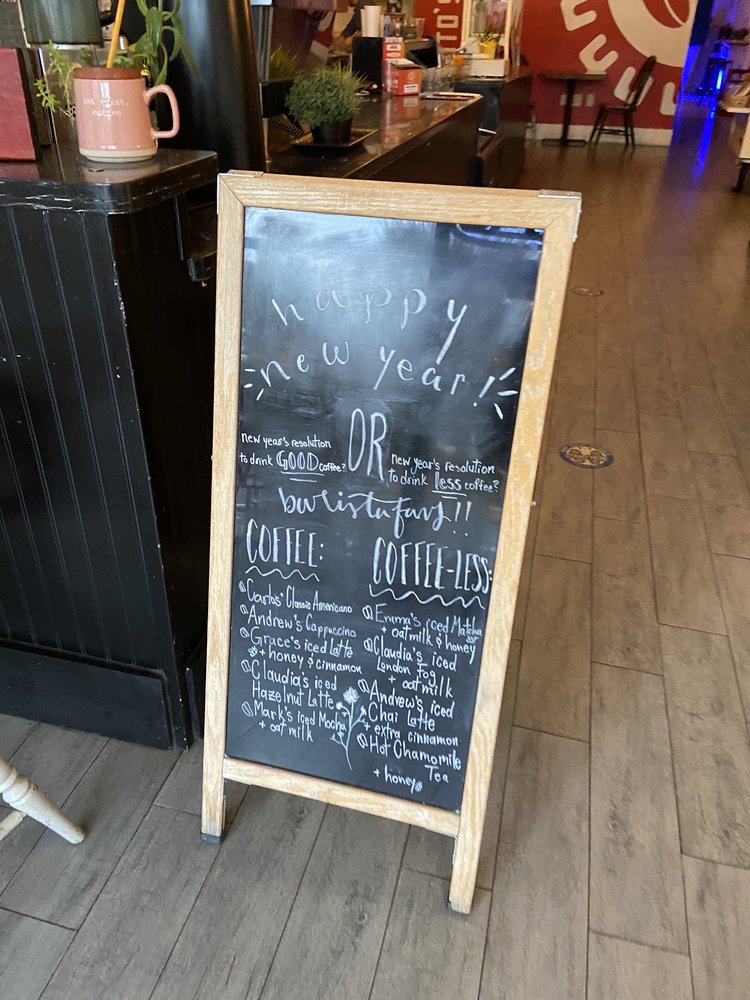 but first,
coffee
TO'S
happy
new year!
OR
new year's resolution
to drink GOOD coffee?
new year's resolution
to drink less coffee?
barista favs!!
COFFEE:
Carlos' Classic Americano
Andrew's Cappuccino
Grace's iced latte
+ honey & cinnamon
Claudia's iced
Hazelnut Latte
Mark's iced Mocha
+ oat milk
COFFEE-LESS:
Emma's iced Matcha
+ oatmilk & honey
Claudia's iced
London Fog
+ oat milk
Andrew's iced
Chai Latte
+ extra cinnamon
Hot Chamomile
Tea
+ honey